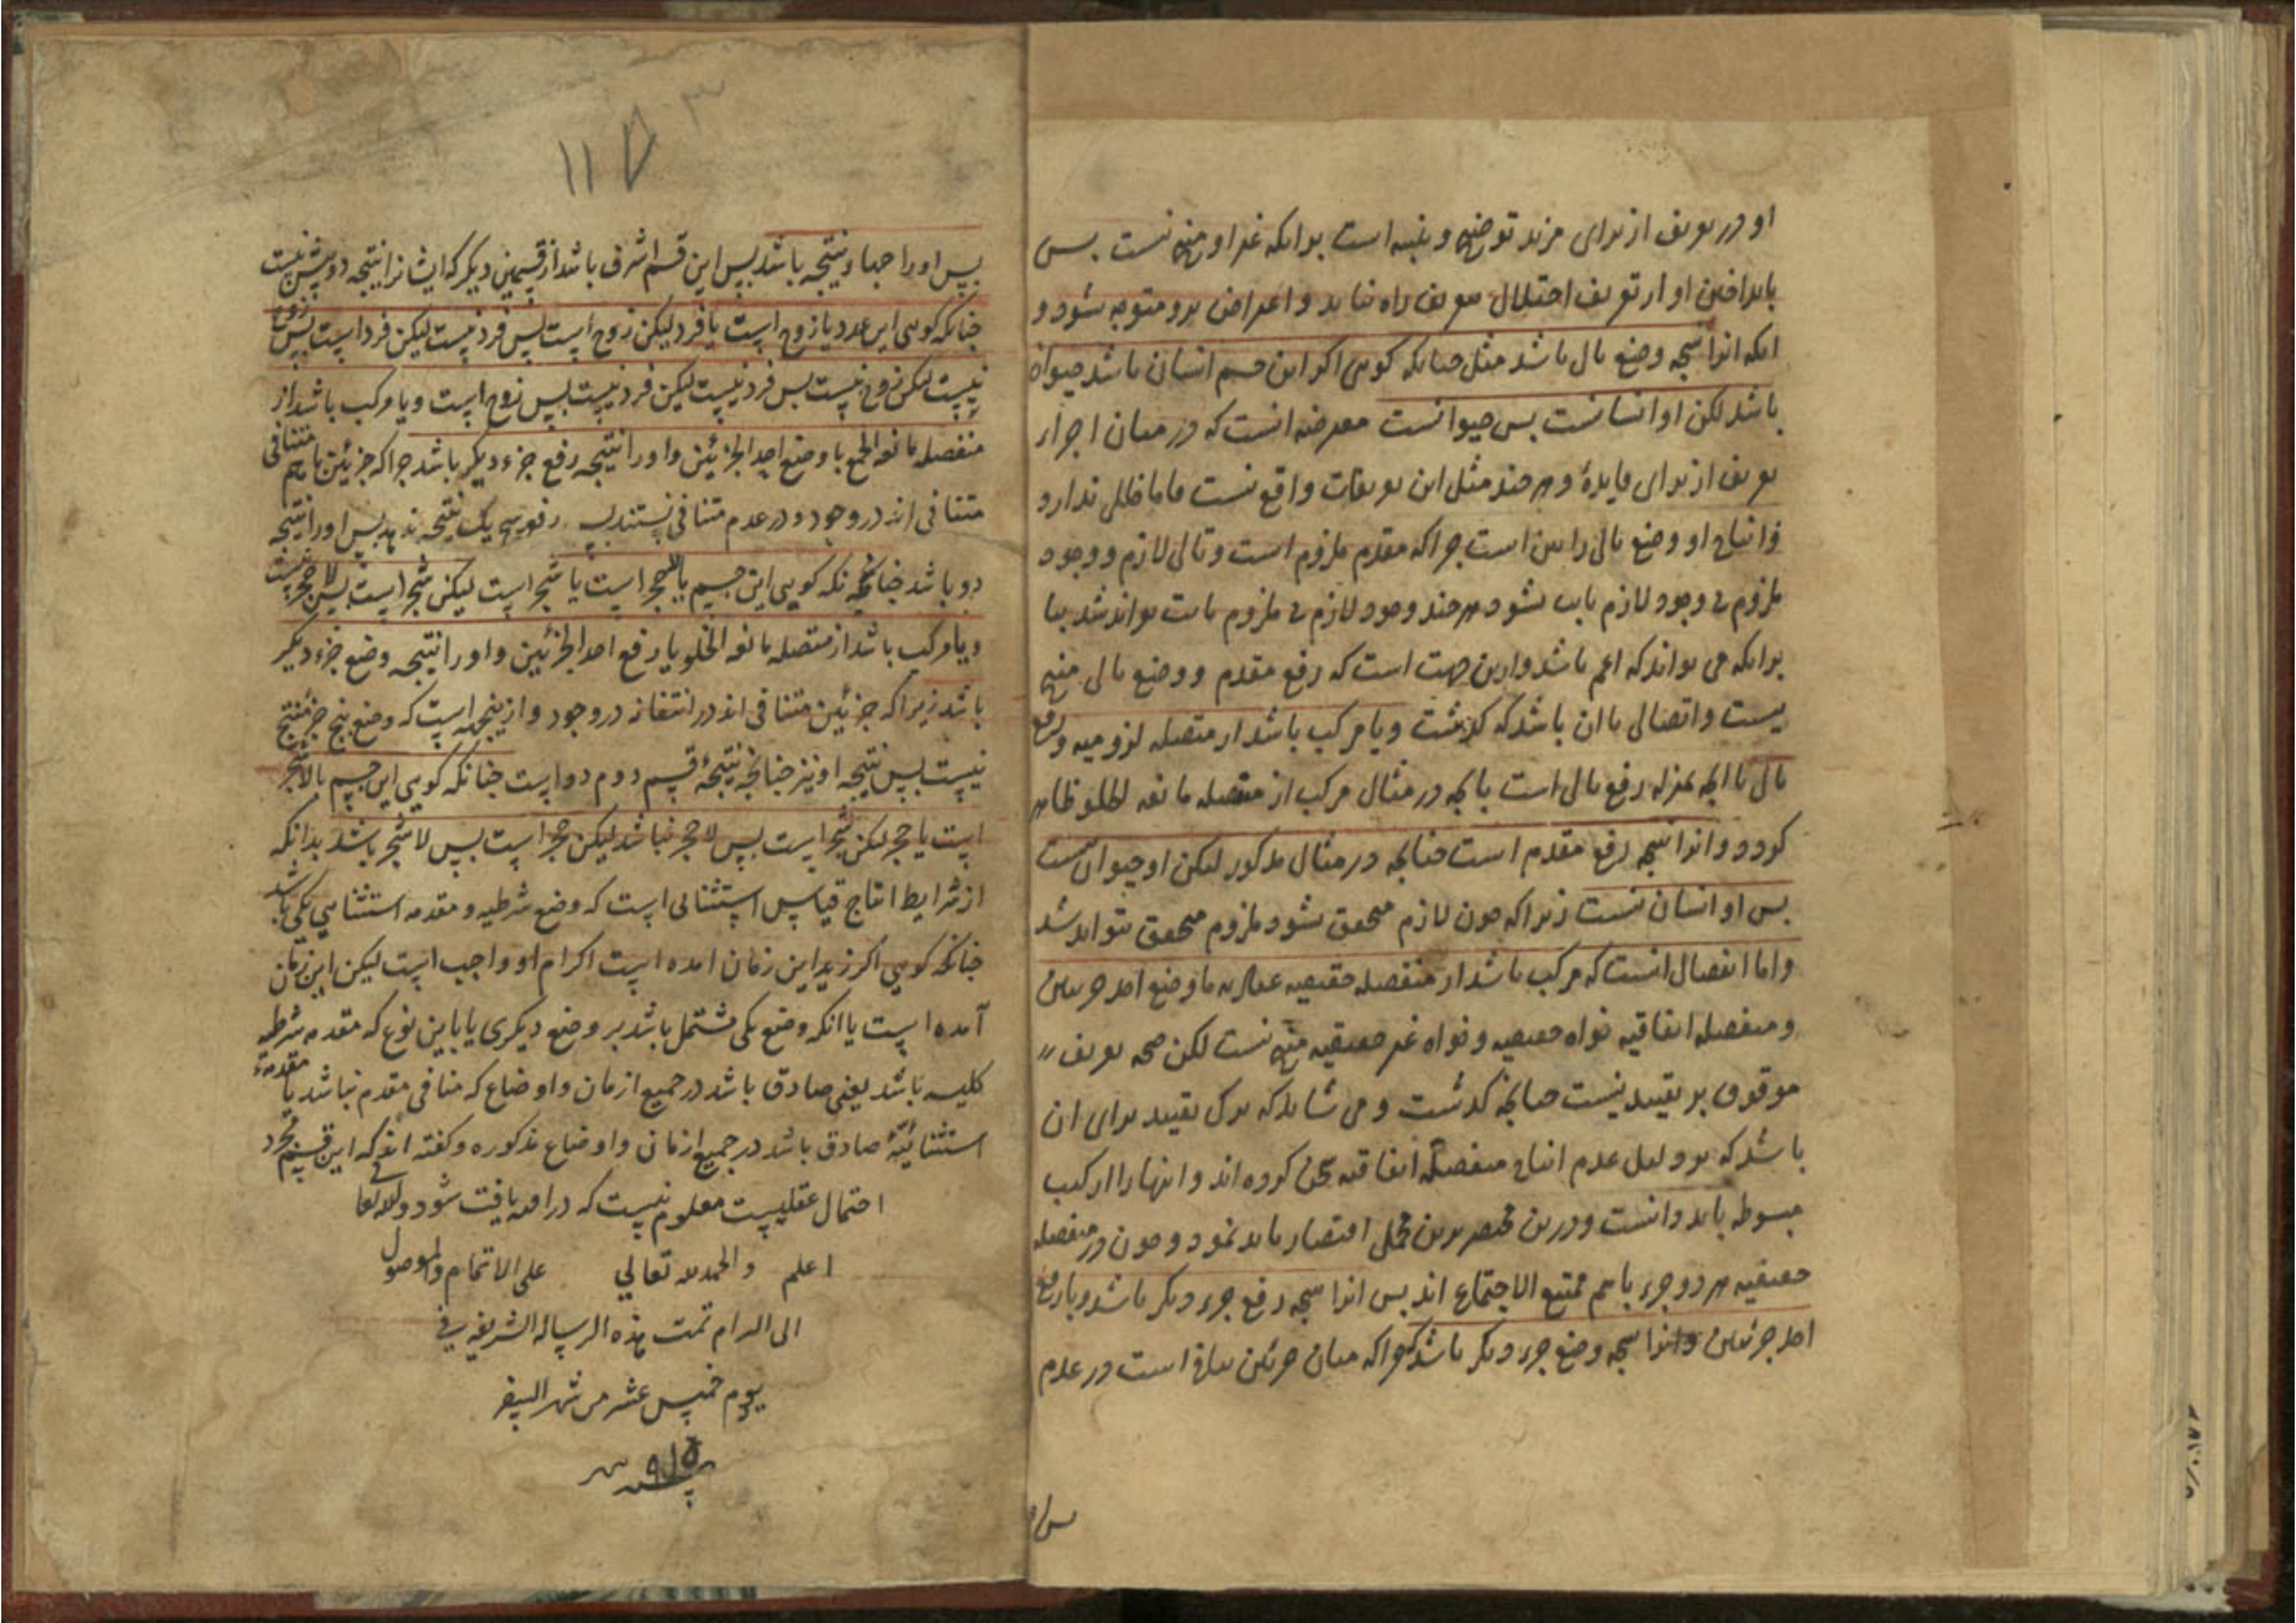 او در تعریف از برای مزید توضیح و تنبیه است بر آنکه غیر او منتج نیست پس
باید افتادن او از تعریف اختلال بتعریف راه نیابد و اعتراض برو متوجه نشود و
آنکه آنرا نتیجه وضع تالی باشد مثل چنانکه کویی اکر این جسم انسان باشد حیوان
باشد لکن او انسانست پس حیوانست معرضه انست که در میان اجزاء
تعریف از برای فایدهٔ و هر چند مثل این در تعریفات واقع نیست فاما خللی ندارد و
انتاج او وضع تالی را بین است چرا که مقدم ملزوم است و تالی لازم و وجود
ملزوم بی وجود لازم ثابت نشود هر چند وجود لازم بی ملزوم ثابت تواند شد بنا
بر آنکه می تواند که اعم باشد و ازین جهت است که رفع مقدم و وضع تالی منتج
نیست و اتصالی یا آن باشد که کذشت و یا مرکب باشد از متصله لزومیه و رفع
تالی یا آنچه بمنزله رفع تالی است چنانچه در مثال مرکب از متصله مانعه الخلو ظاهر
کردد و آنرا نتیجه رفع مقدم است چنانچه در مثال مذکور لیکن او حیوان نیست
پس او انسان نیست زیرا که چون لازم متحقق نشود ملزوم متحقق نتواند شد
و اما انفصال انست که مرکب باشد از منفصله حقیقیه عنادیه با وضع احد جزئین
و منفصله اتفاقیه خواه حقیقیه و خواه غیر حقیقیه منتج نیست لکن صحه تعریف
موقوف بر تقیید نیست چنانچه کذشت و می شاید که ترک تقیید برای آن
باشد که بر دلیل عدم انتاج منفصله اتفاقیه سخن کرده اند و انها را از کتب
مبسوطه باید دانست و درین مختصر برین مجمل اقتصار باید نمود و چون در منفصله
حقیقیه هر دو جزء باهم ممتنع الاجتماع اند پس آنرا نتیجه رفع جزء دیکر باشد و یا رفع
احد جزئین و آنرا نتیجه وضع جزء دیکر باشد چرا که میان جزئین منافاة است در عدم
پس او
۱۱۵ ۳
پس او را چهار نتیجه باشد پس این قسم اشرف باشد از قسمین دیکر که ایشانرا نتیجه دو بیش نیست
چنانکه کویی این عدد یا زوج است یا فرد لیکن زوج است پس فرد نیست لیکن فرد است پس زوج
نیست لیکن زوج نیست پس فرد نیست لیکن فرد نیست پس زوج است و یا مرکب باشد از
منفصله مانعه الجمع با وضع احد الجزئین و او را نتیجه رفع جزء دیکر باشد چرا که جزئین باهم متنافی
متنافی اند در وجود و در عدم متنافی نیستند پس رفع هیچ یک نتیجه ندهد پس او را نتیجه
دو باشد چنانچه نکه کویی این جسم یا حجر است یا شجر است لیکن شجر است پس لا حجر است
و یا مرکب باشد از متصله مانعه الخلو یا رفع احد الجزئین و او را نتیجه وضع جزء دیکر
باشد زیرا که جزئین متنافی اند در انتفا نه در وجود و ازینجهه است که وضع هیچ جزء منتج
نیست پس نتیجه او نیز چنانچه نتیجهٔ قسم دوم دو است چنانکه کویی این جسم یا لا شجر
است یا حجر لکن شجر است پس لا حجر نباشد لیکن حجر است پس لا شجر باشد بدانکه
از شرایط انتاج قیاس استثنائی است که وضع شرطیه و مقدمه استثنایی یکی باشد
چنانکه کویی اکر زید این زمان امده است اکرام او واجب است لیکن این زمان
آمده است یا انکه وضع یکی مشتمل باشد بر وضع دیکری یا باین نوع که مقدمه شرطیه
کلیه باشد یعنی صادق باشد در جمیع ازمان و اوضاع که منافی مقدم نباشد یا مقدمهٔ
استثنائیّهٔ صادق باشد در جمیع ازمان و اوضاع مذکوره و کفته اند که این قسم مجرد
احتمال عقلیست معلوم نیست که در افاده یافت شود والله تعالی
اعلم والحمد لله تعالی علی الاتمام والوصول
الی المرام تمت هذه الرساله الشریفه فی
یوم خمیس عشر من شهر الصفر
سنه ۹۱۵